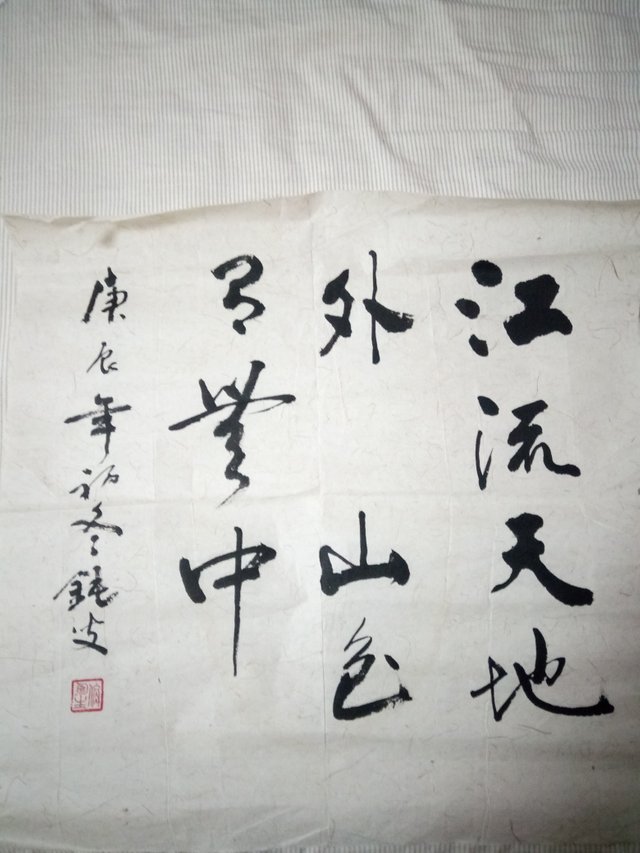 江流天地
外山色
有無中
庚辰年初冬鈍叟